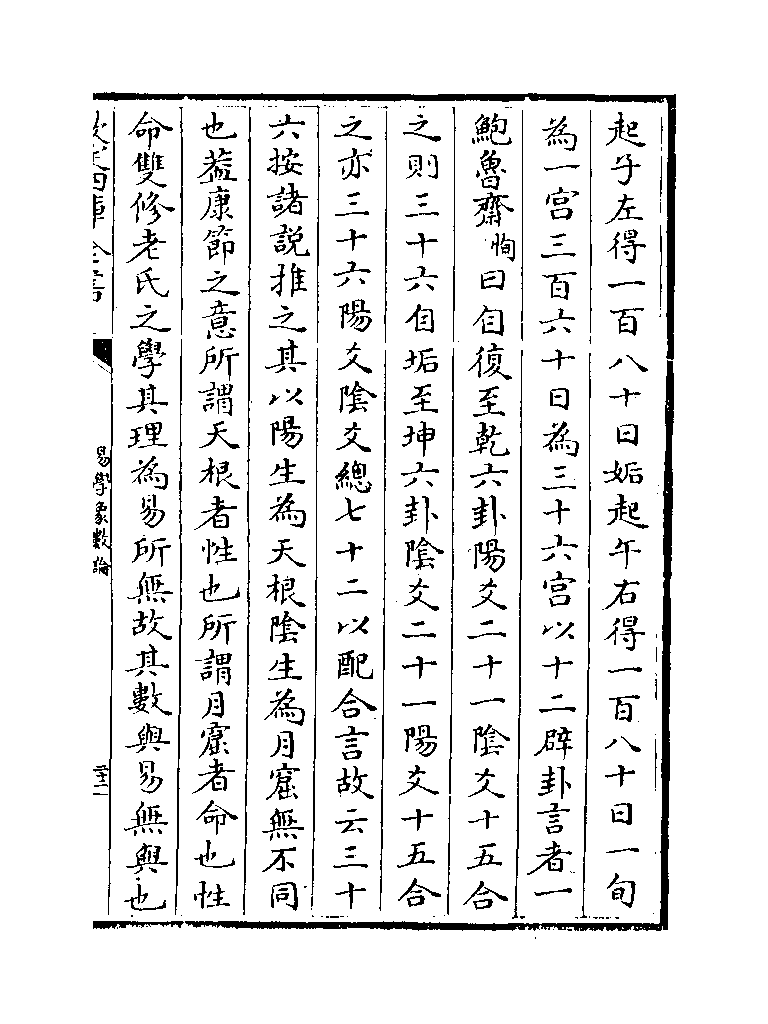 起子左得一百八十日姤起午右得一百八十日一旬
為一宫三百六十日為三十六宫以十二辟卦言者一
鮑魯齋恂曰自復至乾六卦陽爻二十一陰爻十五合
之則三十六自垢至坤六卦隂爻二十一陽爻十五合
之亦三十六陽爻陰爻總七十二以配合言故云三十
六按諸説推之其以陽生為天根陰生為月窟無不同
也葢康節之意所謂天根者性也所謂月窟者命也性
命雙修老氏之學其理為易所無故其數與易無與也
易學象數論